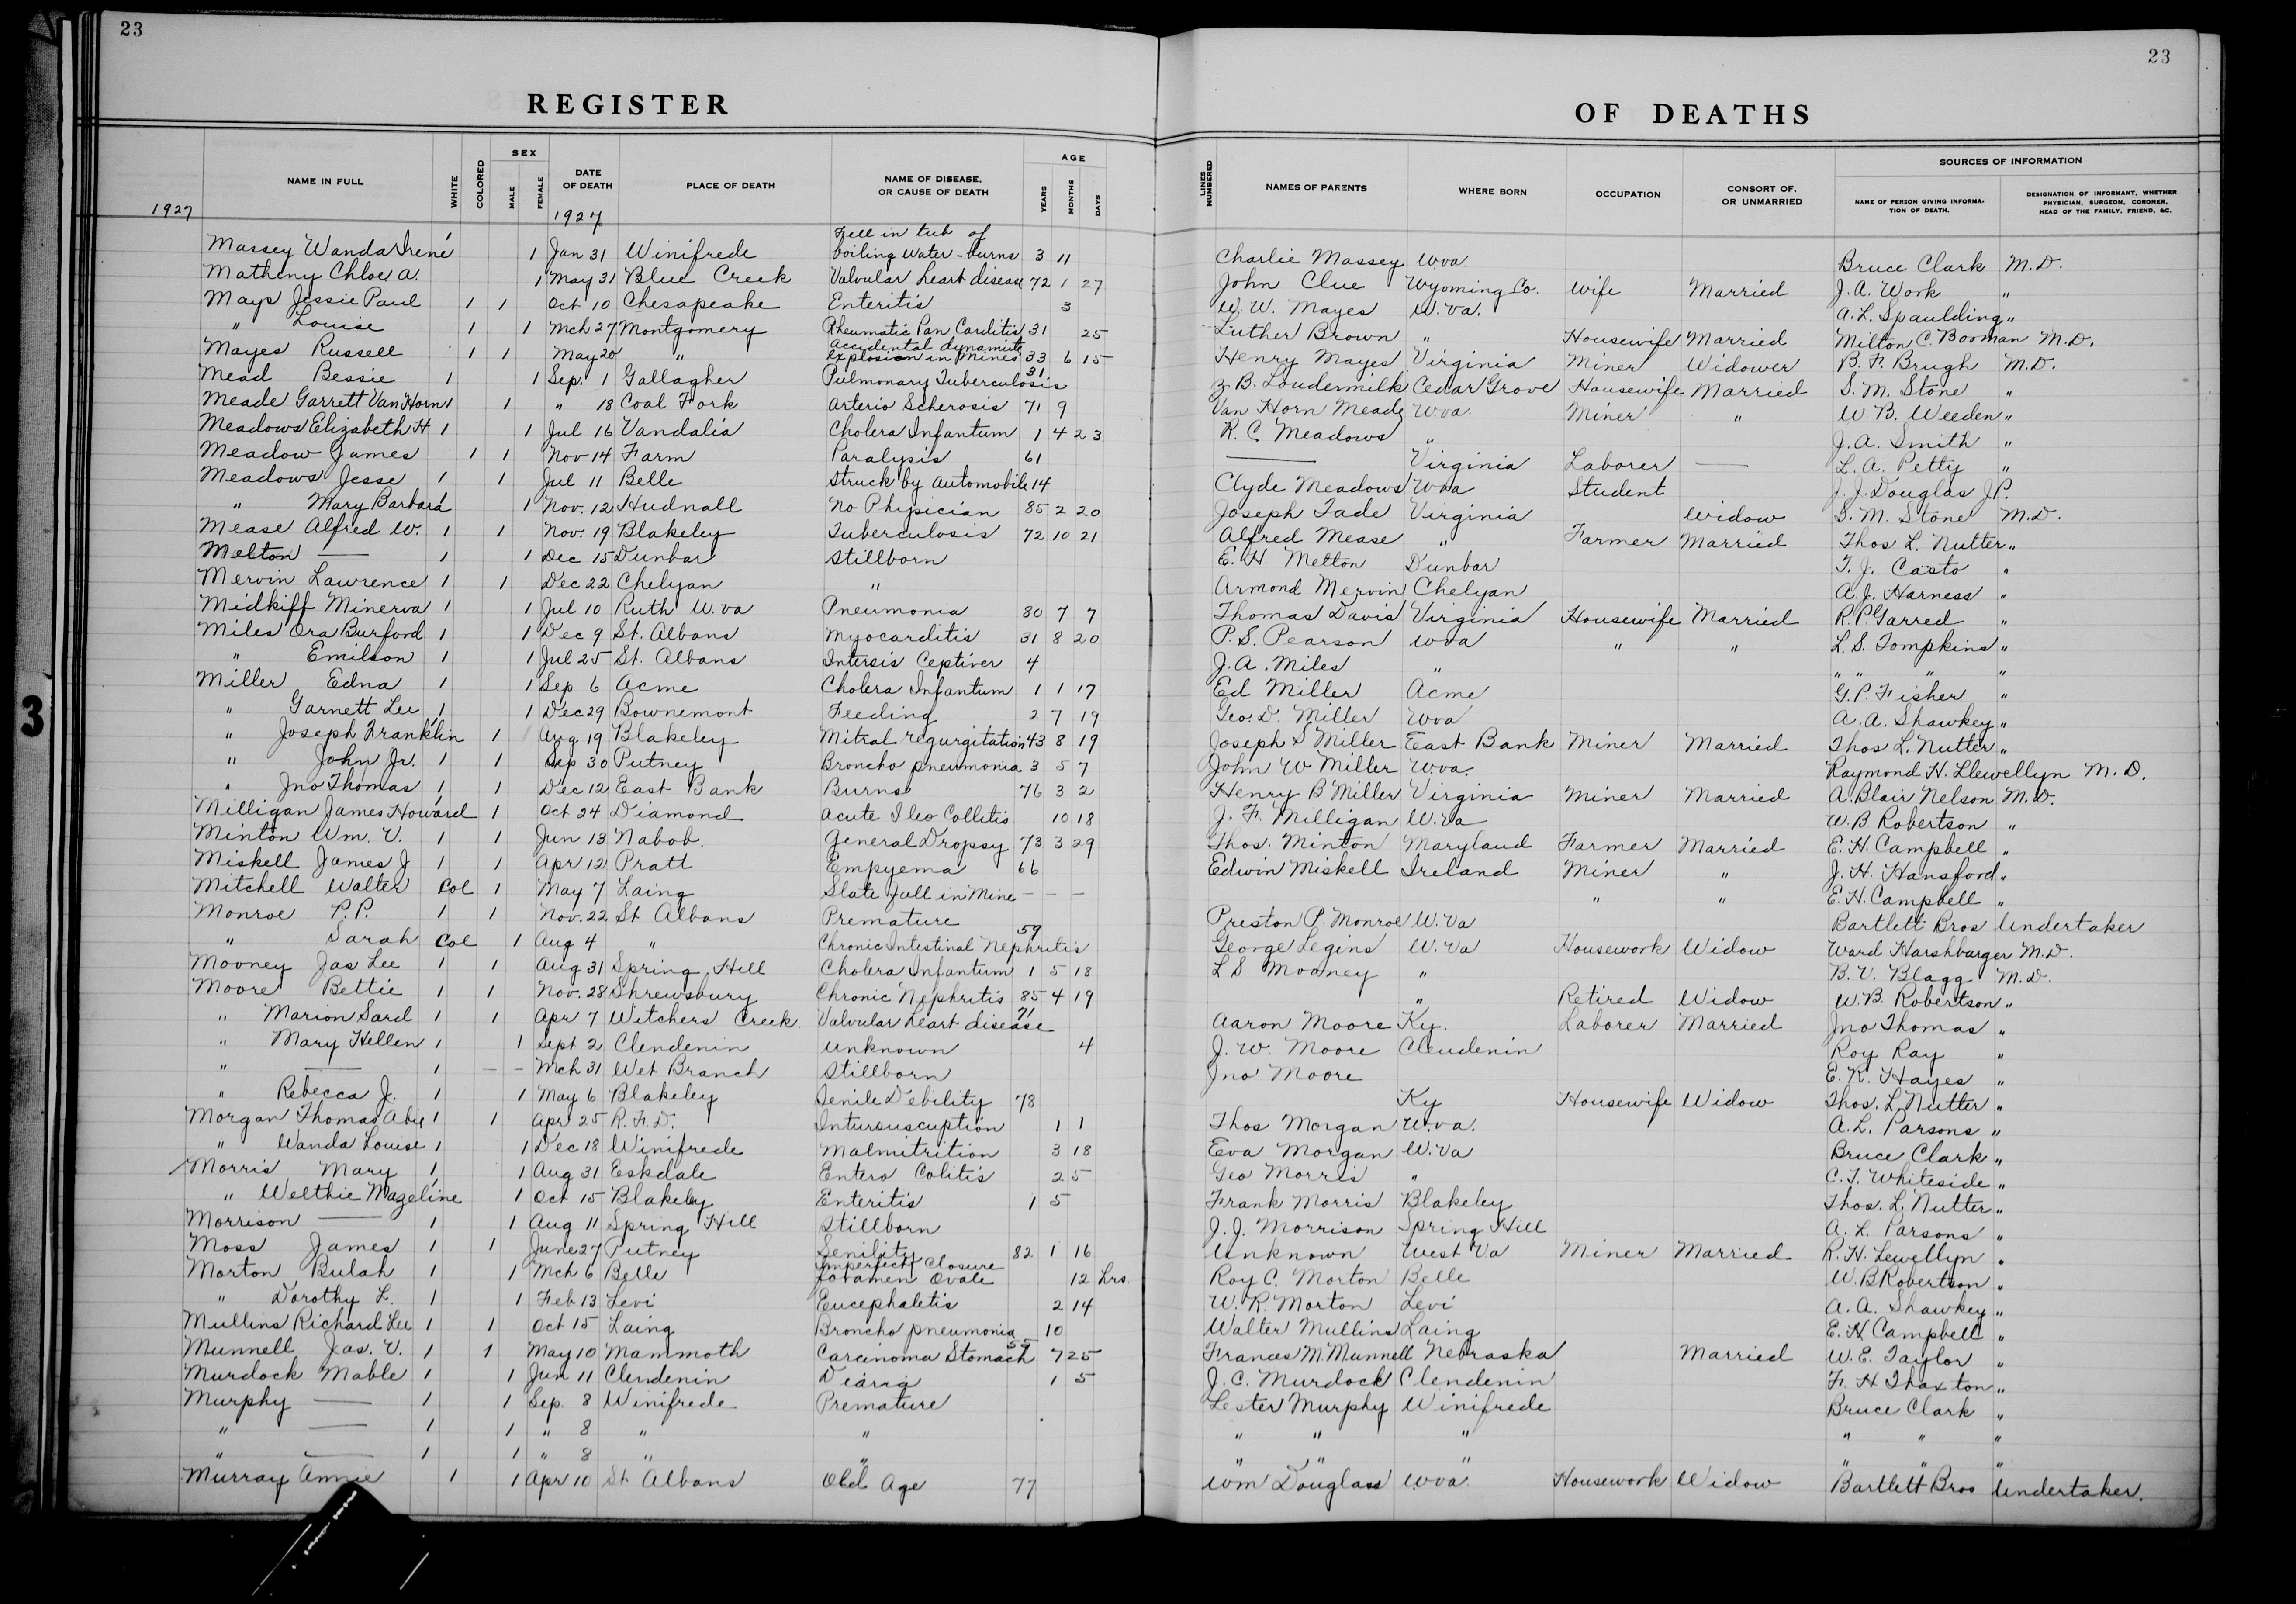 23
23
REGISTER OF DEATHS
NAME IN FULL WHITE COLORED SEX MALE FEMALE DATE OF DEATH PLACE OF DEATH NAME OF DISEASE, OR CAUSE OF DEATH AGE YEARS MONTHS DAYS LINES NUMBERED NAMES OF PARENTS WHERE BORN OCCUPATION CONSORT OF, OR UNMARRIED SOURCES OF INFORMATION NAME OF PERSON GIVING INFORMATION OF DEATH. DESIGNATION OF INFORMANT, WHETHER PHYSICIAN, SURGEON, CORONER, HEAD OF THE FAMILY, FRIEND, &C.
1927 1927
Massey Wanda Irene 1 1 Jan 31 Winifrede Fell in tub of boiling water - burns 3 11 Charlie Massey W.va. Bruce Clark M.D.
Matheny Chloe A. 1 May 31 Blue Creek Valvular heart disease 72 1 27 John Clue Wyoming Co. Wife Married J.A. Work "
Mays Jessie Paul 1 1 Oct 10 Chesapeake Enteritis 3 W. W. Mayes W.va. A.L. Spaulding "
" Louise 1 1 Mch 27 Montgomery Rheumatic Pan Carditis 31 25 Luther Brown " Housewife Married Milton C. Booman M.D.
Mayes Russell 1 1 May 20 " Accidental dynamite explosion in mines 33 6 15 Henry Mayes Virginia Miner Widower B.F. Brugh M.D.
Mead Bessie 1 1 Sep. 1 Gallagher Pulmonary Tuberculosis 31 B. Loudermilk Cedar Grove Housewife Married S.M. Stone "
Meade Garrett Van Horn 1 1 " 18 Coal Fork Arterio Scherosis 71 9 Van Horn Meade W.va. Miner " W.B. Weeden "
Meadows Elizabeth H 1 1 Jul 16 Vandalia Cholera Infantum 1 4 23 R.C. Meadows " J.A. Smith "
Meadow James 1 1 Nov 14 Farm Paralysis 61 — Virginia Laborer — L.A. Petty "
Meadows Jesse 1 1 Jul 11 Belle Struck by Automobile 14 Clyde Meadows Wva Student J.J. Douglas J.P.
" Mary Barbara 1 1 Nov. 12 Hudnall No Physician 85 2 20 Joseph Tade Virginia Widow S.M. Stone M.D.
Mease Alfred W. 1 1 Nov. 19 Blakeley Tuberculosis 72 10 21 Alfred Mease " Farmer Married Thos L. Nutter "
Melton — 1 1 Dec 15 Dunbar Stillborn E.H. Melton Dunbar T.J. Casto "
Mervin Lawrence 1 1 Dec 22 Chelyan " Armond Mervin Chelyan A.J. Harness "
Midkiff Minerva 1 1 Jul 10 Ruth W.va Pneumonia 80 7 7 Thomas Davis Virginia Housewife Married R.P. Garred "
Miles Ora Burford 1 1 Dec 9 St. Albans Myocarditis 31 8 20 P.S. Pearson Wva " " L.S. Tompkins "
" Emilson 1 1 Jul 25 St. Albans Intersis Ceptiver 4 J.A. Miles " " " " "
Miller Edna 1 1 Sep 6 Acme Cholera Infantum 1 1 17 Ed Miller Acme G.P. Fisher "
" Garnett Lee 1 1 Dec 29 Bownemont Feeding 2 7 19 Geo. D. Miller Wva A.A. Shawkey "
" Joseph Franklin 1 1 Aug 19 Blakeley Mitral regurgitation 43 8 19 Joseph S Miller East Bank Miner Married Thos L. Nutter "
" John Jr. 1 1 Sep 30 Putney Broncho pneumonia 3 5 7 John W Miller W.va. Raymond H. Llewellyn M.D.
" Jno Thomas 1 1 Dec 12 East Bank Burns 76 3 2 Henry B Miller Virginia Miner Married A. Blair Nelson M.D.
Milligan James Howard 1 1 Oct 24 Diamond Acute Ileo Collitis 10 18 J.F. Milligan W.va W.B. Robertson "
Minton Wm. V. 1 1 Jun 13 Nabob. General Dropsy 73 3 29 Thos. Minton Maryland Farmer Married E.H. Campbell "
Miskell James J 1 1 Apr 12 Pratt Empyema 66 Edwin Miskell Ireland Miner " J.H. Hansford "
Mitchell Walter Col 1 May 7 Laing Slate fall in Mine — — — " " E.H. Campbell "
Monroe P.P. 1 1 Nov. 22 St Albans Premature Preston P. Monroe W.Va Bartlett Bros Undertaker
" Sarah Col 1 Aug 4 " Chronic Intestinal Nephritis 59 George Legins W.Va Housework Widow Ward Harshbarger M.D.
Mooney Jas Lee 1 1 Aug 31 Spring Hill Cholera Infantum 1 5 18 L.S. Mooney " B.V. Blagg M.D.
Moore Bettie 1 1 Nov. 28 Shrewsbury Chronic Nephritis 85 4 19 " Retired Widow W.B. Robertson "
" Marion Sard 1 1 Apr 7 Witchers Creek. Valvular heart disease 71 Aaron Moore Ky. Laborer Married Jno Thomas "
" Mary Hellen 1 1 Sept 2 Clendenin Unknown 4 J.W. Moore Clendenin Roy Ray "
" — 1 — — Mch 31 Wet Branch Stillborn Jno Moore E.K. Hayes "
" Rebecca J. 1 1 May 6 Blakeley Senile Debility 78 Ky Housewife Widow Thos. L. Nutter "
Morgan Thomas Abie 1 1 Apr 25 R.F.D. Intursuscuption 1 1 Thos Morgan W.va. A.L. Parsons "
" Wanda Louise 1 1 Dec 18 Winifrede Malnutrition 3 18 Eva Morgan W.Va Bruce Clark "
Morris Mary 1 1 Aug 31 Eskdale Entero Colitis 2 5 Geo Morris " C.T. Whiteside "
" Welthie Mazeline 1 Oct 15 Blakeley Enteritis 1 5 Frank Morris Blakeley Thos. L. Nutter "
Morrison — 1 1 Aug 11 Spring Hill Stillborn J.J. Morrison Spring Hill A.L. Parsons "
Moss James 1 1 June 27 Putney Senility 82 1 16 Unknown West Va Miner Married R.H. Lewellyn "
Morton Bulah 1 1 Mch 6 Belle Imperfect Closure foramen Ovale 12 hrs. Roy C. Morton Belle W.B Robertson "
" Dorothy L. 1 1 Feb 13 Levi Encephaletis 2 14 W.R. Morton Levi A.A. Shawkey "
Mullins Richard Lee 1 1 Oct 15 Laing Broncho pneumonia 10 Walter Mullins Laing E.H. Campbell "
Munnell Jas. V. 1 1 May 10 Mammoth Carcinoma Stomach 59 7 25 Frances M. Munnell Nebraska Married W.E. Taylor "
Murdock Mable 1 1 Jun 11 Clendenin Diarea 1 5 J.C. Murdock Clendenin F.H. Thaxton "
Murphy — 1 1 Sep. 8 Winifrede Premature Lester Murphy Winifrede Bruce Clark "
" — 1 1 " 8 " " " " " " " "
" — 1 1 " 8 " " " " " " " "
Murray Annie 1 1 Apr 10 St. Albans Old Age 77 Wm Douglass W.va. Housework Widow Bartlett Bros Undertaker.
3